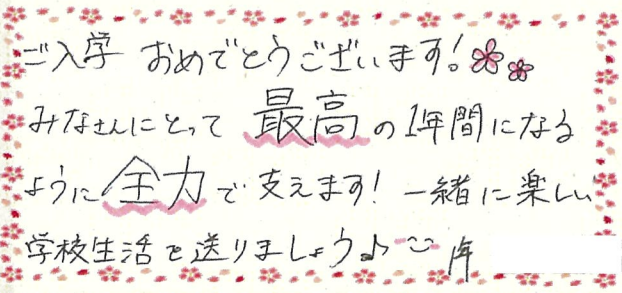 ご入学 おめでとうございます!
みなさんにとって 最高 の 1年間になる
ように 全力 で 支えます! 一緒に楽しい
学校生活を送りましょう♪ 1年